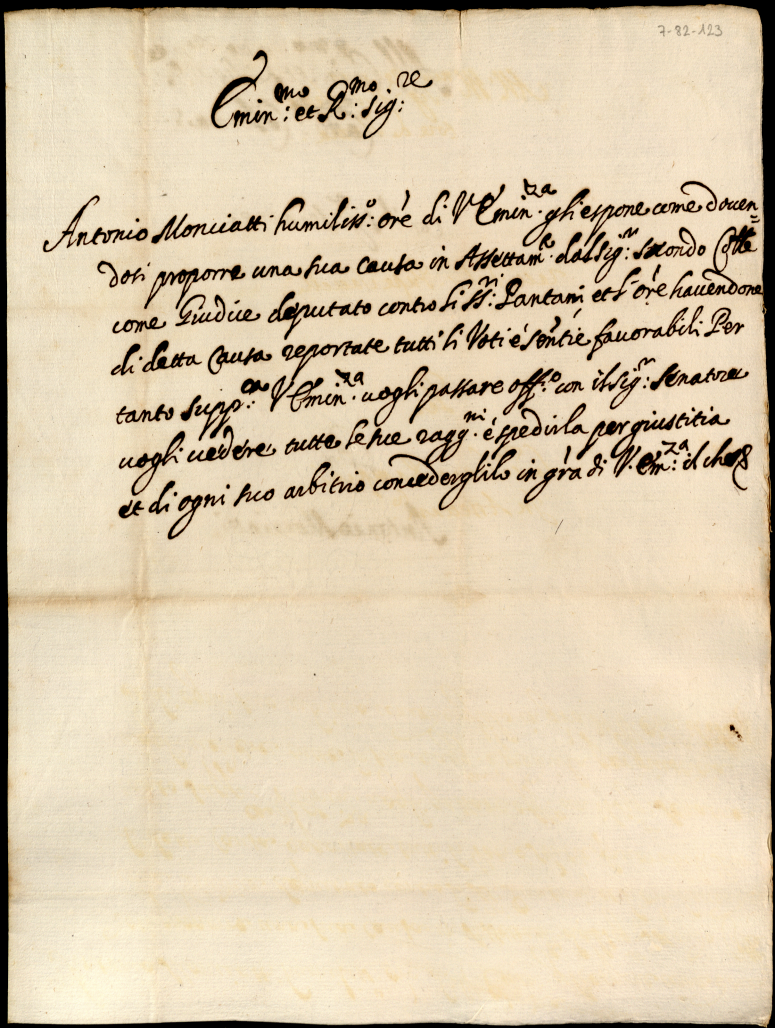 7-82-123
Emin:mo et R:mo Sig:re
Antonio Monciatti humiliss:o ore di V Emin.za gli espone come doven=
dosi proporre una sua causa in Assettam.e dal Sig:r Secondo
come Giudice deputato contro li SS:ri Pantani et l'ore havendone
di detta Causa reportate tutti li Voti è sentie favorabili Per
tanto supp:ca V Emin.za vogli passare off:o con il sig:r Senatore
vogli vedere tutte le sue ragg:ni è spedirla per giustitia
et di ogni suo arbitrio concederglilo in gra di V. Em:za il che